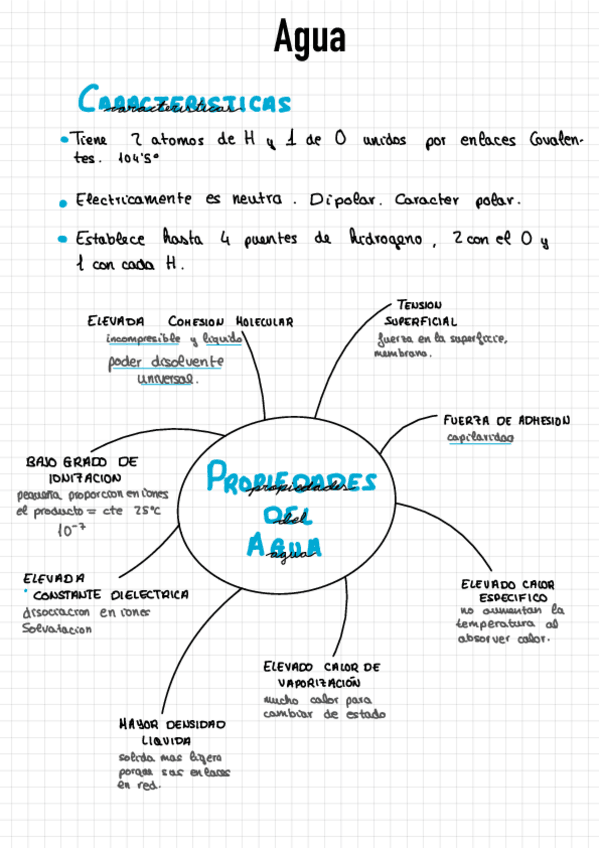 Agua
CARACTERISTICAS
características
• Tiene 2 atomos de H y 1 de O unidos por enlaces Covalen-
tes. 104'5°
• Electricamente es neutra. Dipolar. Caracter polar.
• Establece hasta 4 puentes de hidrogeno, 2 con el O y
1 con cada H.
ELEVADA COHESION MOLECULAR
incompresible y liquido
poder disolvente
universal.
TENSION
SUPERFICIAL
fuerza en la superficie,
membrana.
FUERZA DE ADHESION
capilaridad
BAJO GRADO DE
IONIZACION
pequeña proporcion en iones
el producto = cte 25°C
10⁻⁷
PROPIEDADES
propiedades
DEL
del
AGUA
agua
ELEVADA
CONSTANTE DIELECTRICA
disociacion en iones
Solvatacion
ELEVADO CALOR
ESPECIFICO
no aumentan la
temperatura al
absorver calor.
ELEVADO CALOR DE
VAPORIZACIÓN
mucho calor para
cambiar de estado
MAYOR DENSIDAD
LIQUIDA
solida mas ligera
porque sus enlaces
en red.